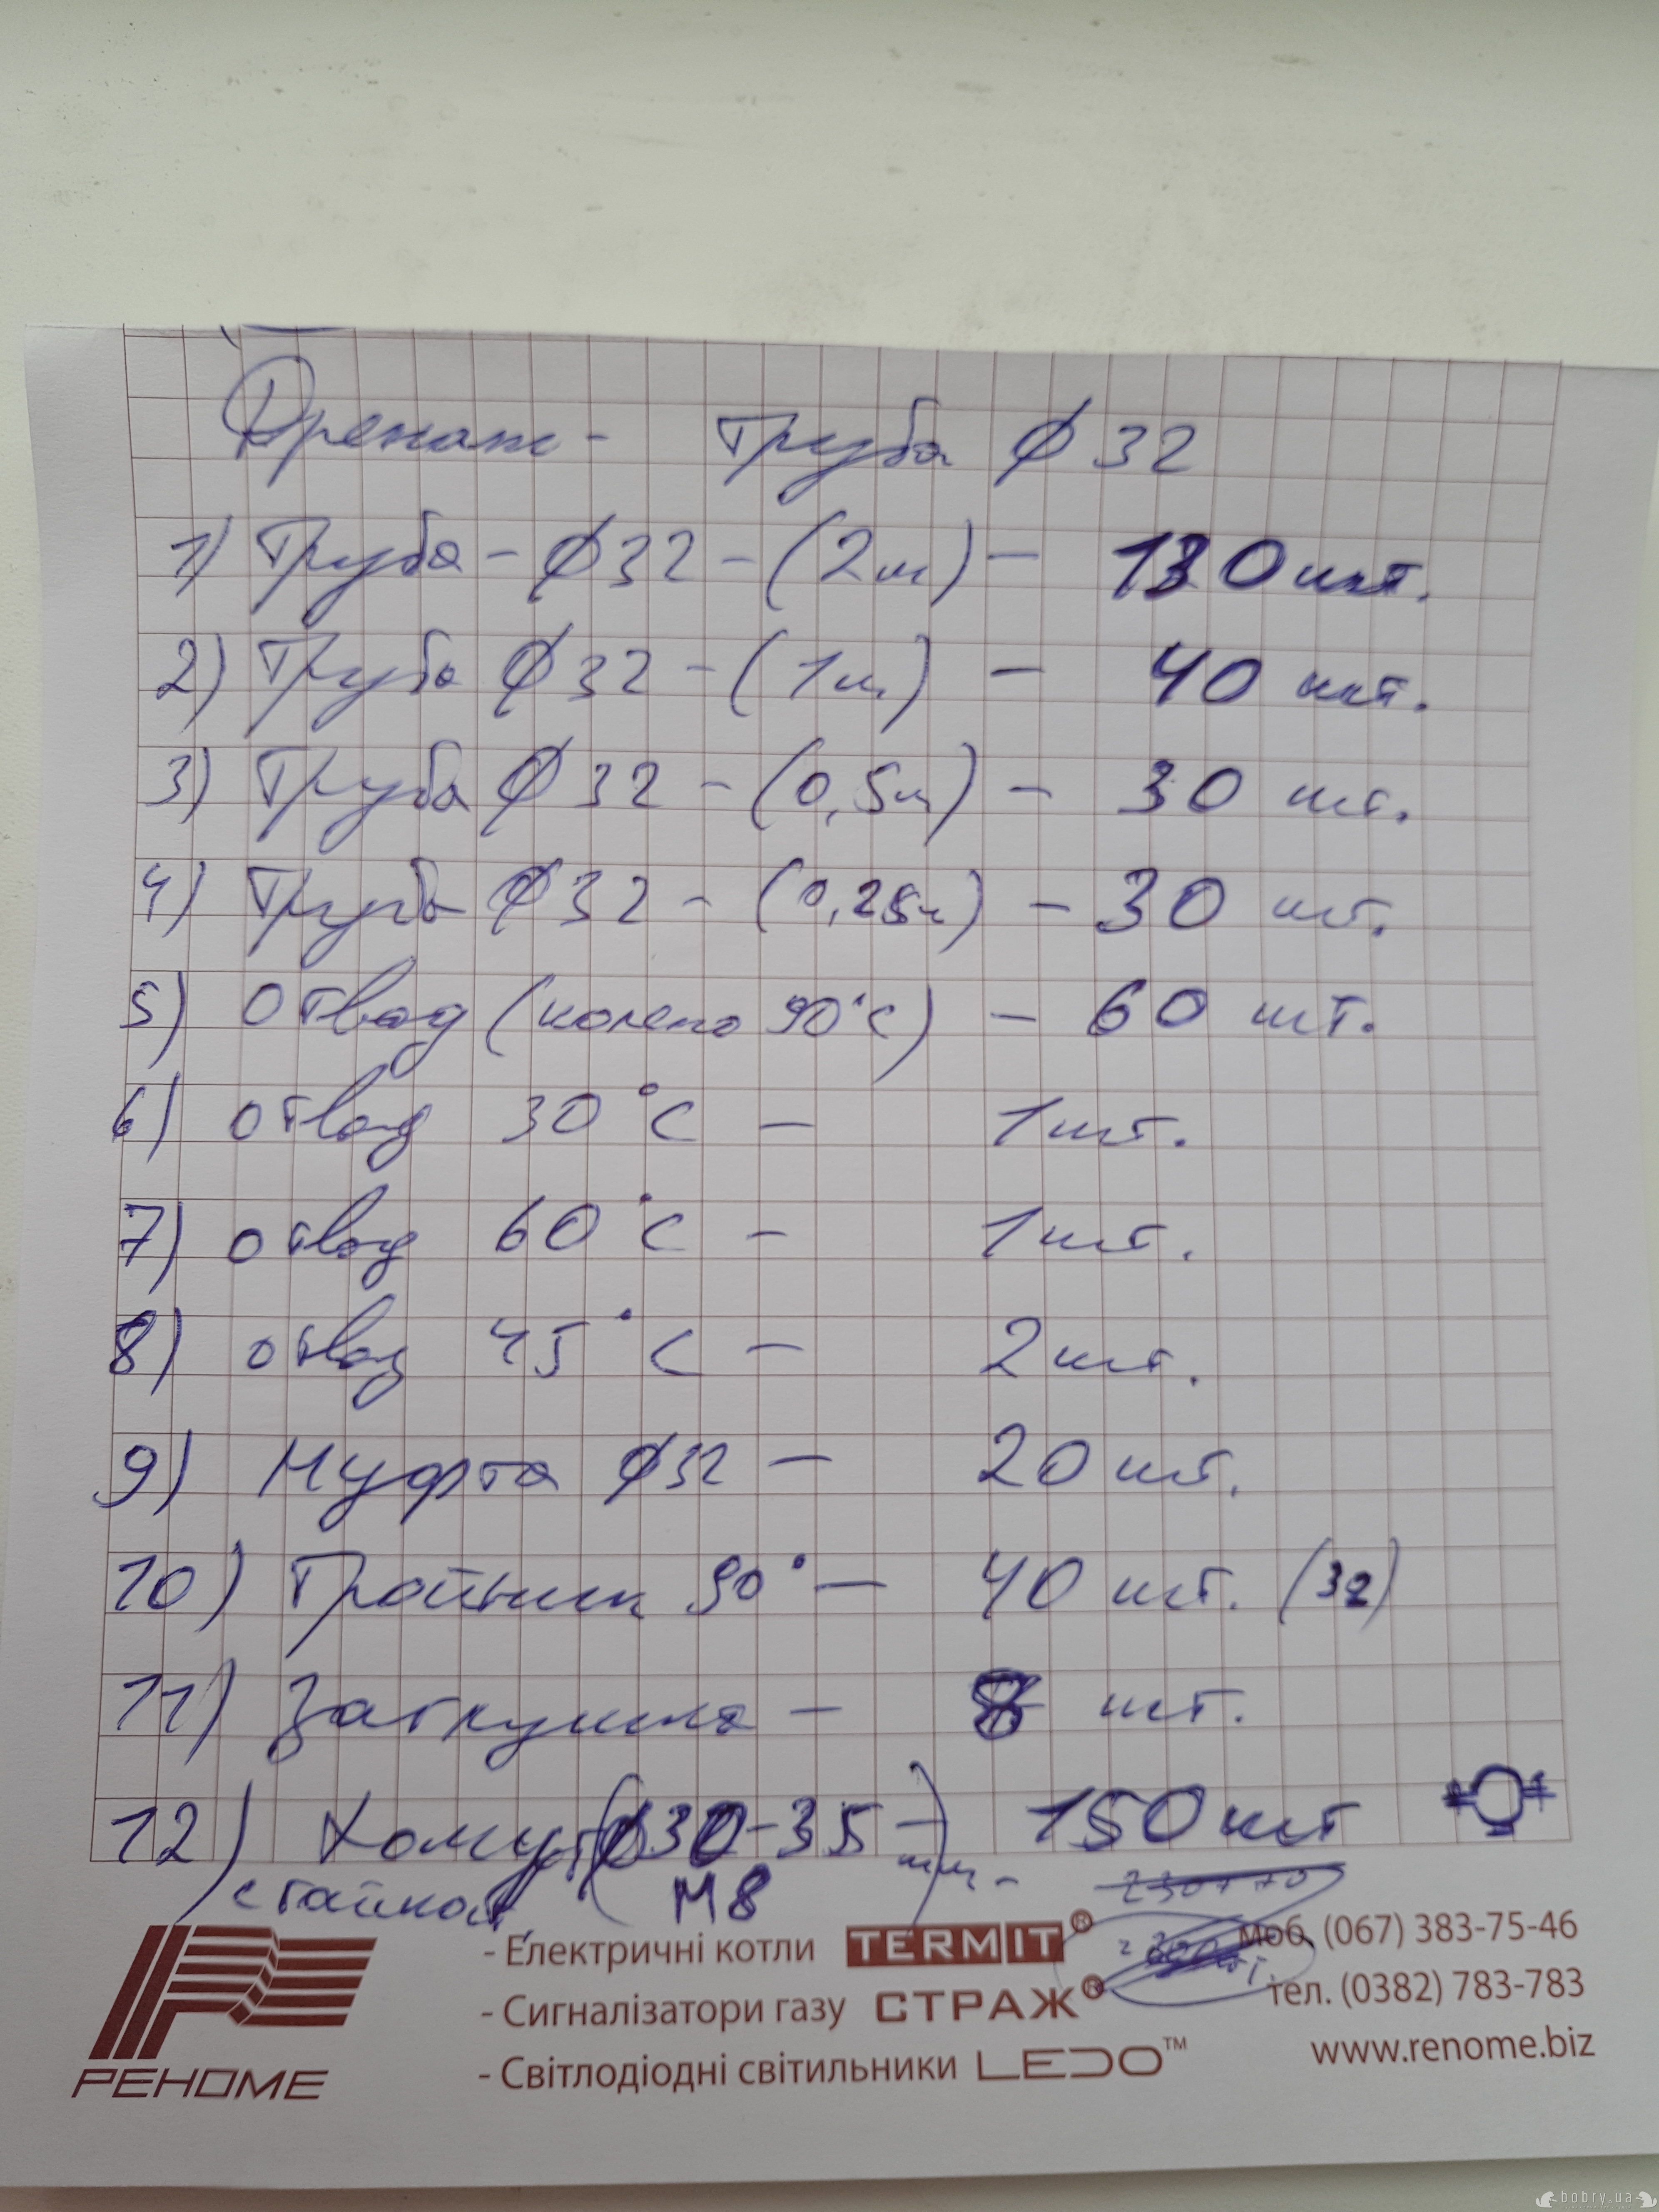 Дренаж - Труба ф 32
1) Труба - ф 32 - (2м) - 130 шт.
2) Труба ф 32 - (1м) - 40 шт.
3) Труба ф 32 - (0,5м) - 30 шт.
4) Труба ф 32 - (0,25м) - 30 шт.
5) Отвод (колено 90°С) - 60 шт.
6) отвод 30°С - 1 шт.
7) отвод 60°С - 1 шт.
8) отвод 45°С - 2 шт.
9) Муфта ф32 - 20 шт.
10) Тройник 90° - 40 шт. (32)
11) Заглушка - 8 шт.
12) Хомут (ф30-35 мм - 150 шт
с гайкой М8)
РЕНОМЕ
- Електричні котли TERMIT®
- Сигналізатори газу СТРАЖ®
- Світлодіодні світильники LEDO™
моб. (067) 383-75-46
тел. (0382) 783-783
www.renome.biz
bobry.ua